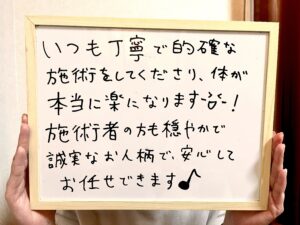 いつも丁寧で的確な
施術をしてくださり、体が
本当に楽になります^o^!
施術者の方も穏やかで
誠実なお人柄で、安心して
お任せできます♪